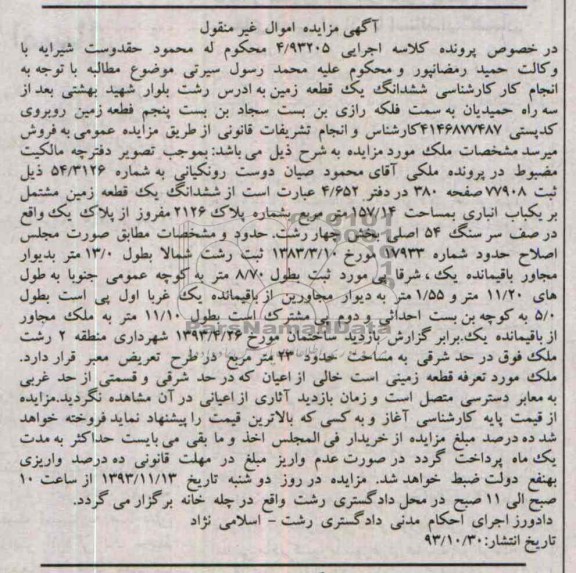 آگهی مزایده اموال غیر منقول
در خصوص پرونده کلاسه اجرایی ۴/۹۳۲۰۵ محکوم له محمود حقدوست شیرایه با
وکالت حمید رمضانپور و محکوم علیه محمد رسول سیرتی موضوع مطالبه با توجه به
انجام کار کارشناسی ششدانگ یک قطعه زمین به ادرس رشت بلوار شهید بهشتی بعد از
سه راه حمیدیان به سمت فلکه رازی بن بست سجاد بن بست پنجم قطعه زمین روبروی
کدپستی ۴۱۴۶۸۷۷۴۸۷کارشناس و انجام تشریفات قانونی از طریق مزایده عمومی به فروش
میرسد مشخصات ملک مورد مزایده به شرح ذیل می باشد: بموجب تصویر دفترچه مالکیت
مضبوط در پرونده ملکی آقای محمود صیان دوست رونکیانی به شماره ۵۴/۳۱۲۶ ذیل
ثبت ۷۷۹۰۸ صفحه ۳۸۰ در دفتر ۴/۶۵۲ عبارت است از ششدانگ یک قطعه زمین مشتمل
بر یکباب انباری بمساحت ۱۵۷/۱۴ متر مربع بشماره پلاک ۲۱۲۶ مفروز از پلاک یک واقع
در صف سر سنگ ۵۴ اصلی بخش چهار رشت. حدود و مشخصات مطابق صورت مجلس
اصلاح حدود شماره ۱۷۹۳۳ مورخ ۱۳۸۳/۳/۱۰ ثبت رشت شمالا بطول ۱۳/۰ متر بدیوار
مجاور باقیمانده یک ، شرقا پی مورد ثبت بطول ۸/۷۰ متر به کوچه عمومی جنوبا به طول
های ۱۱/۲۰ متر و ۱/۵۵ متر به دیوار مجاورین از باقیمانده یک غربا اول پی است بطول
۵/۰ به کوچه بن بست احداثی و دوم پی مشترک است بطول ۱۱/۱۰ متر به ملک مجاور
از باقیمانده یک.برابر گزارش بازدید ساختمان مورخ ۱۳۹۳/۴/۲۶ شهرداری منطقه ۲ رشت
ملک فوق در حد شرقی به مساحت حدود ۲۳ متر مربع در طرح تعریض معبر قرار دارد.
ملک مورد تعرفه قطعه زمینی است خالی از اعیان که در حد شرقی و قسمتی از حد غربی
به معابر دسترسی متصل است و زمان بازدید آثاری از اعیانی در آن مشاهده نگردید.مزایده
از قیمت پایه کارشناسی آغاز و به کسی که بالاترین قیمت را پیشنهاد نماید فروخته خواهد
شد ده درصد مبلغ مزایده از خریدار فی المجلس اخذ و ما بقی می بایست حداکثر به مدت
یک ماه پرداخت گردد در صورت عدم واریز مبلغ در مهلت قانونی ده درصد واریزی
بهنفع دولت ضبط خواهد شد. مزایده در روز دو شنبه تاریخ ۱۳۹۳/۱۱/۱۳ از ساعت ۱۰
صبح الی ۱۱ صبح در محل دادگستری رشت واقع در چله خانه برگزار می گردد.
دادورز اجرای احکام مدنی دادگستری رشت - اسلامی نژاد
تاریخ انتشار: ۹۳/۱۰/۳۰
ParsNamadData